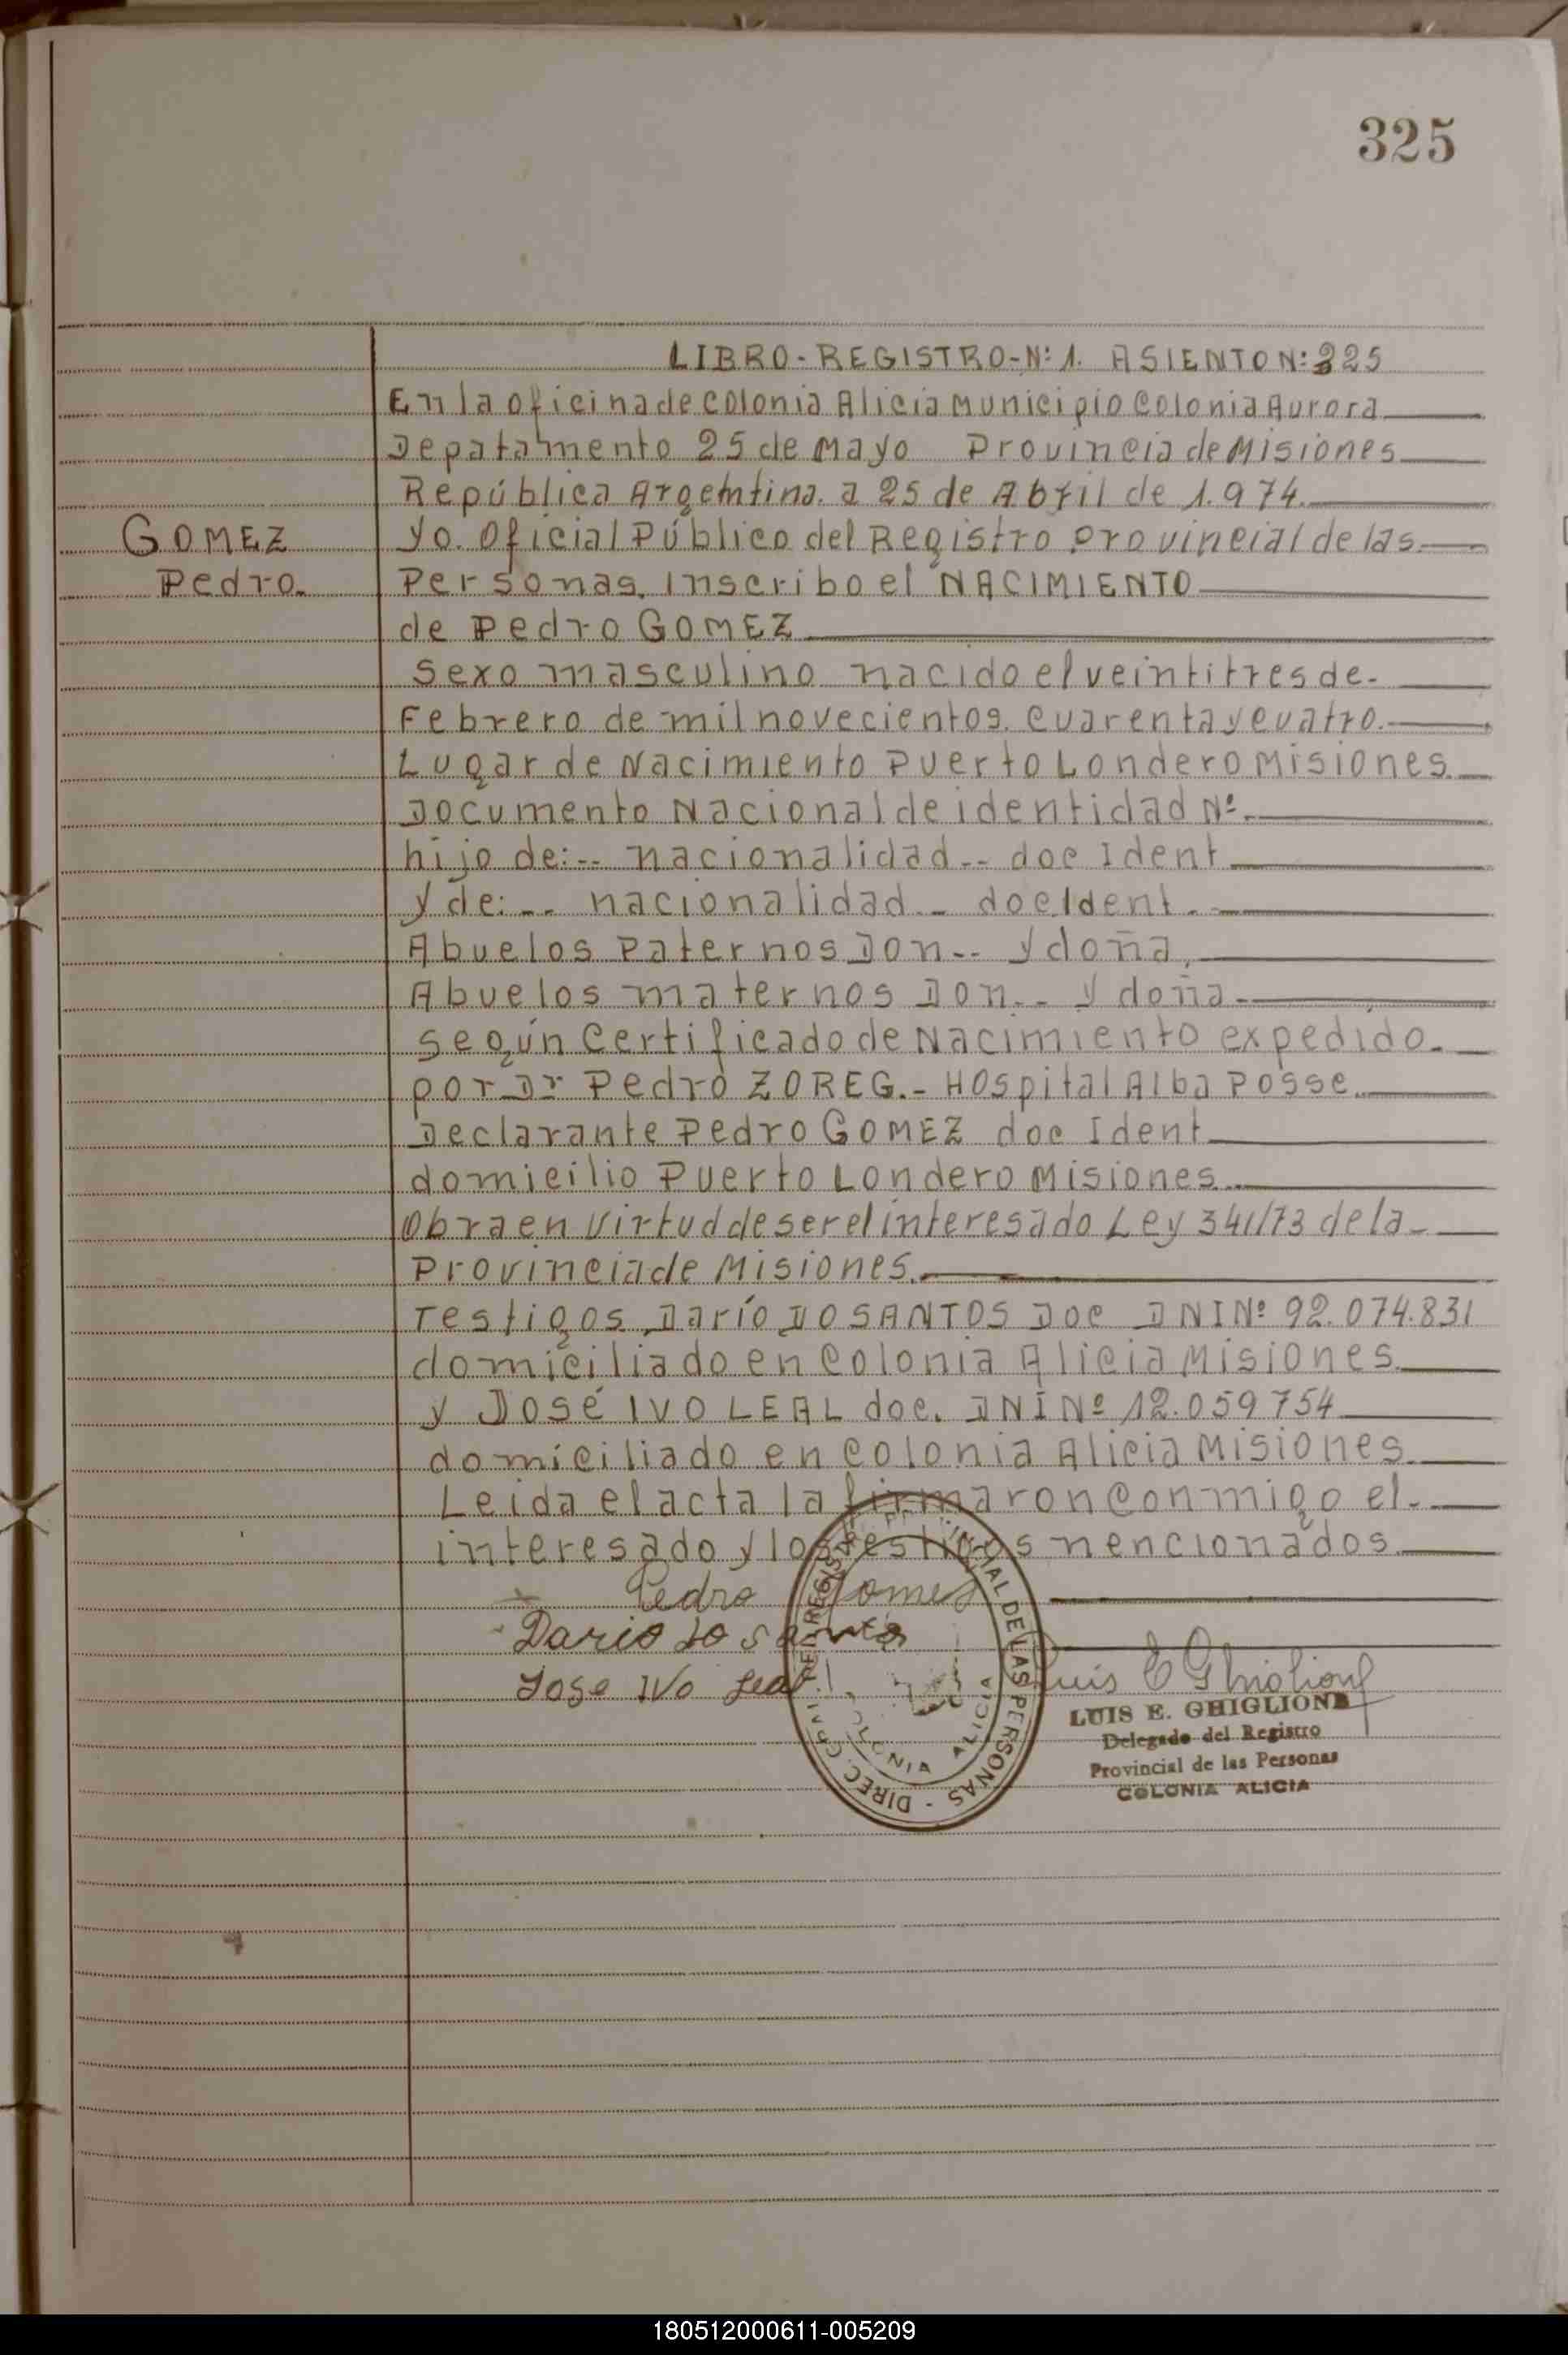 325
LIBRO-REGISTRO-Nº 1. ASIENTO Nº: 325
En la oficina de Colonia Alicia Municipio Colonia Aurora
Depatamento 25 de Mayo Provincia de Misiones
República Argentina. a 25 de Abril de 1.974.
GOMEZ
Pedro.
Yo. Oficial Público del Registro Provincial de las
Personas. Inscribo el NACIMIENTO
de Pedro GOMEZ
Sexo masculino nacido el veintitres de-
Febrero de mil novecientos. cuarenta y cuatro.
Lugar de Nacimiento Puerto Londero Misiones.
Documento Nacional de identidad Nº.
hijo de:-- nacionalidad-- doc Ident
y de:-- nacionalidad-- doc Ident.-
Abuelos Paternos Don-- y doña.
Abuelos maternos Don-- y doña-
Según Certificado de Nacimiento expedido.
por Dr Pedro ZOREG.- Hospital Alba Posse.
Declarante Pedro GOMEZ doc Ident
domicilio Puerto Londero Misiones.
Obra en virtud de ser el interesado Ley 341/73 de la-
Provincia de Misiones.
Testigos Darío DO SANTOS Doc DNI Nº 92.074.831
domiciliado en Colonia Alicia Misiones.
y José IVO LEAL doc. DNI Nº 12.059754
domiciliado en Colonia Alicia Misiones.
Leida el acta la firmaron conmigo el.
interesado y los testigos nencionados.
Pedro Gomes
Dario do Santos
Jose Ivo Leal
DIREC. GRAL. DEL REGISTRO PROVINCIAL DE LAS PERSONAS -
COLONIA ALICIA
Luis E Ghiglione
LUIS E. GHIGLIONE
Delegado del Registro
Provincial de las Personas
COLONIA ALICIA
180512000611-005209